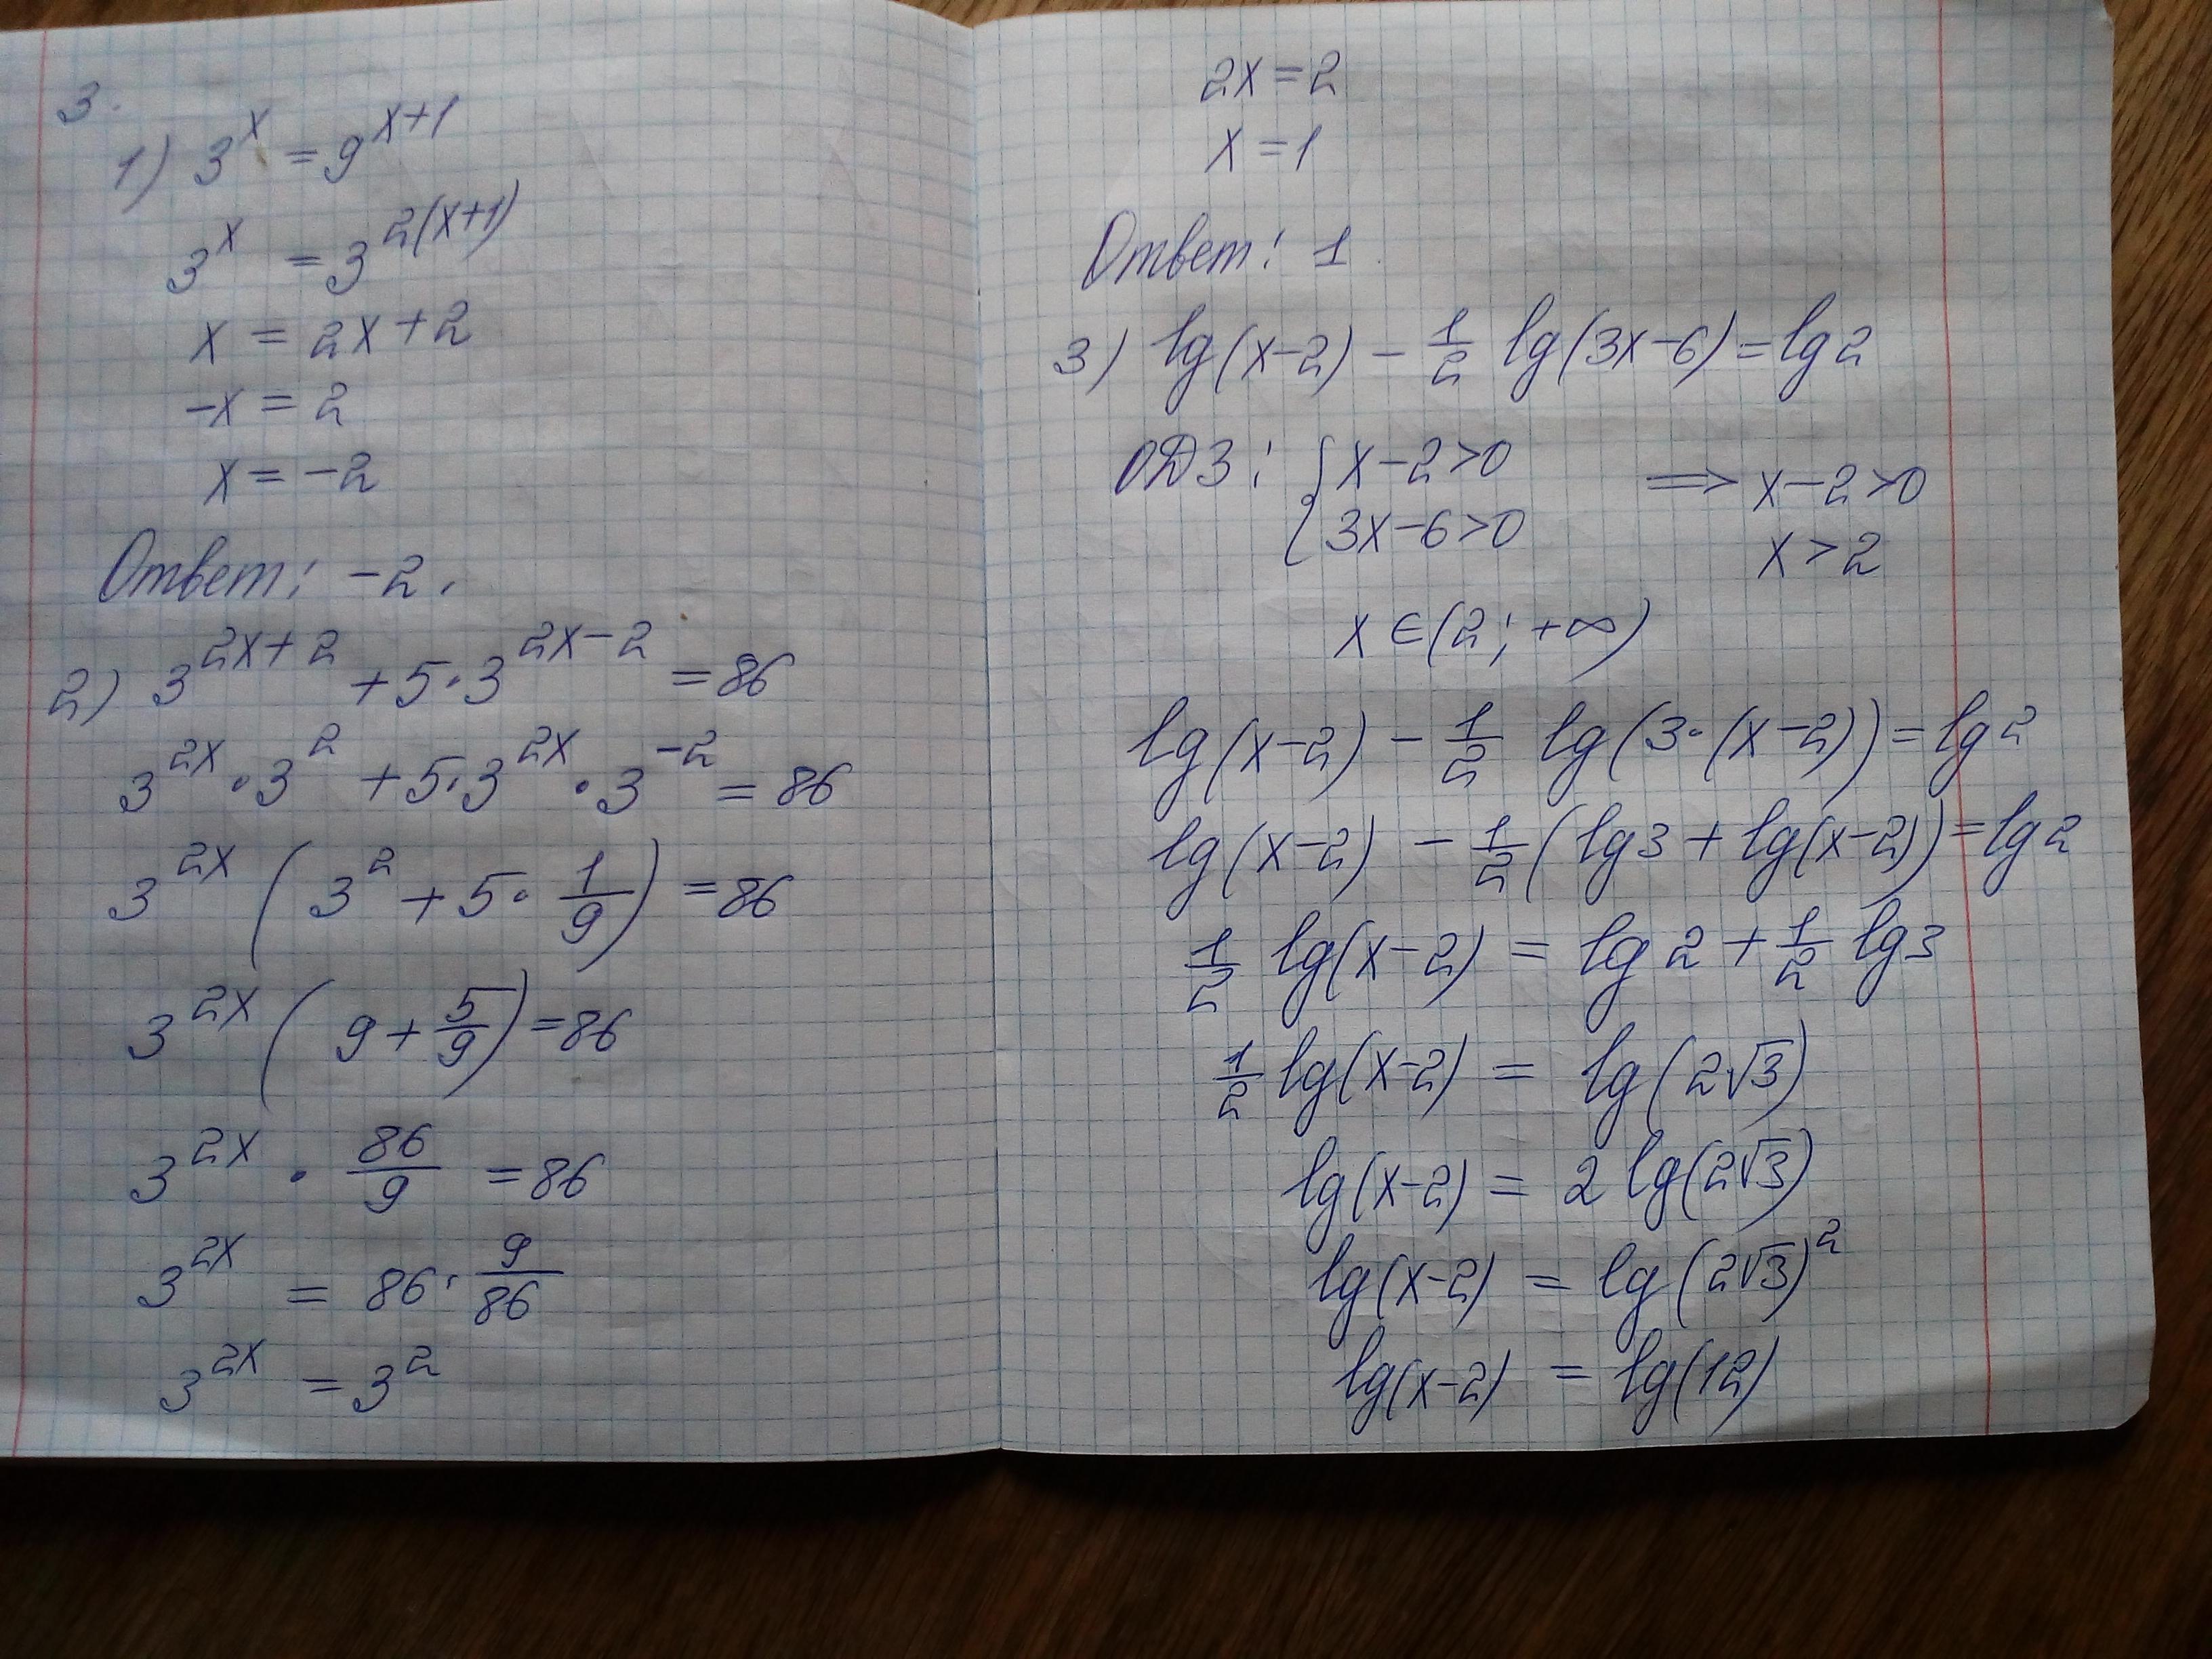 3.
1) 3^x = 9^(x+1)
3^x = 3^(2(x+1))
x = 2x+2
-x = 2
x = -2
Ответ: -2.
2) 3^(2x+2) + 5·3^(2x-2) = 86
3^(2x)·3^2 + 5·3^(2x)·3^(-2) = 86
3^(2x) (3^2 + 5·1/9) = 86
3^(2x) (9 + 5/9) = 86
3^(2x) · 86/9 = 86
3^(2x) = 86·9/86
3^(2x) = 3^2
2x = 2
x = 1
Ответ: 1
3) lg(x-2) - 1/2 lg(3x-6) = lg2
ОДЗ: { x-2>0 ⟹ x-2>0
3x-6>0 x>2
x ∈ (2; +∞)
lg(x-2) - 1/2 lg(3·(x-2)) = lg2
lg(x-2) - 1/2 (lg3 + lg(x-2)) = lg2
1/2 lg(x-2) = lg2 + 1/2 lg3
1/2 lg(x-2) = lg(2√3)
lg(x-2) = 2 lg(2√3)
lg(x-2) = lg(2√3)^2
lg(x-2) = lg(12)